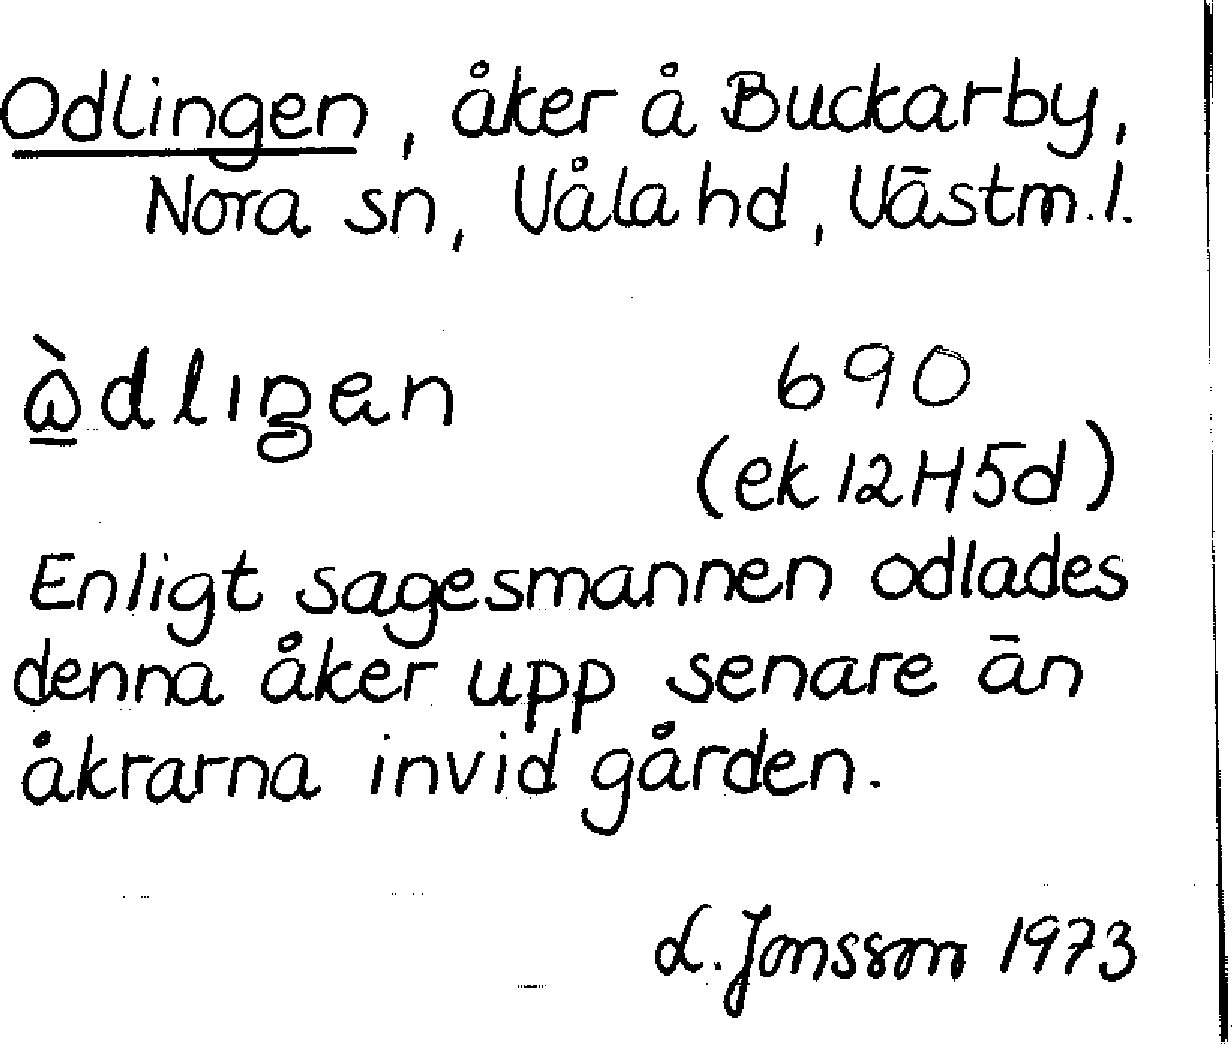 Odlingen, åker å Buckarby,
Nora sn, Våla hd, Västm. l.
690
(ek 12H5d)
Enligt sagesmannen odlades
denna åker upp senare än
åkrarna invid gården.
L. Jonsson 1973